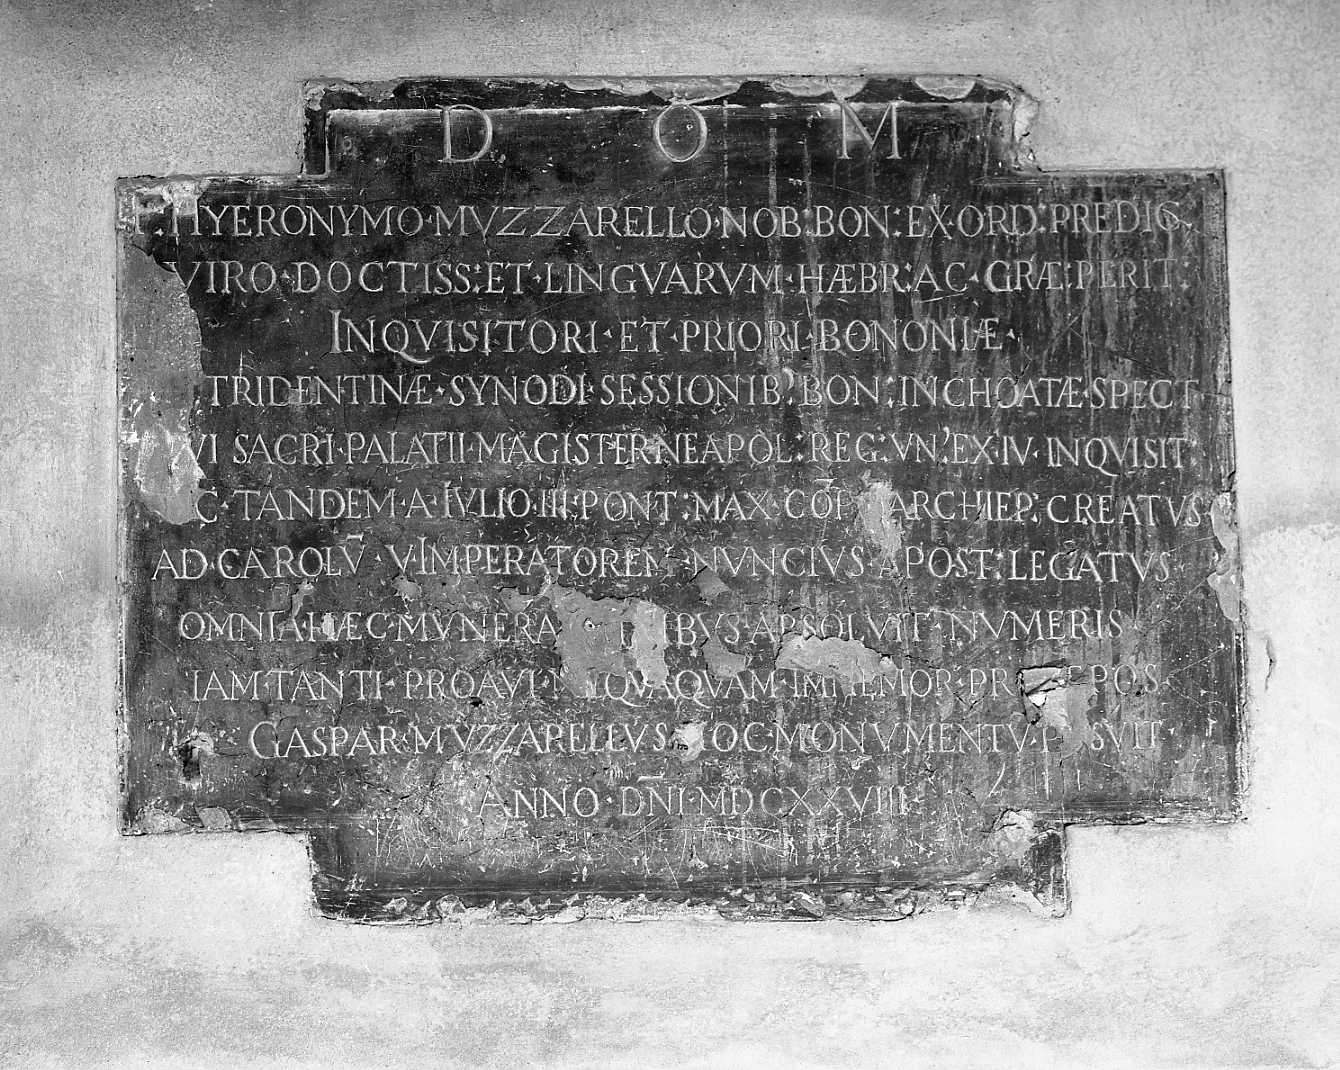 D O M
F. HYERONYMO · MVZZARELLO · NOB: BON: EX · ORD: PREDIC
VIRO · DOCTISS: ET · LINGVARVM · HÆBR: AC · GRÆ: PERIT:
INQVISITORI · ET · PRIORI · BONONIÆ ·
TRIDENTINÆ · SYNODI · SESSIONIB: BON: INCHOATÆ · SPECT
SACRI · PALATII · MAGISTER · NEAPOL: REG: VN: EX · IV · INQVISIT
TANDEM · A · IVLIO · III · PONT: MAX · ARCHIEP: CREATVS
AD · CAROLV̄ · V · IMPERATOREM · NVNCIVS · POST: LEGATVS ·
OMNIA · HÆC · MVNERA ABSOLVIT · NVMERIS
IAM · TANTI · PROAVI · IMMEMOR
GASPAR · MVZZARELLVS OC · MONVMENTV̄
ANNO · DN̄I · MDCXXVIII ·